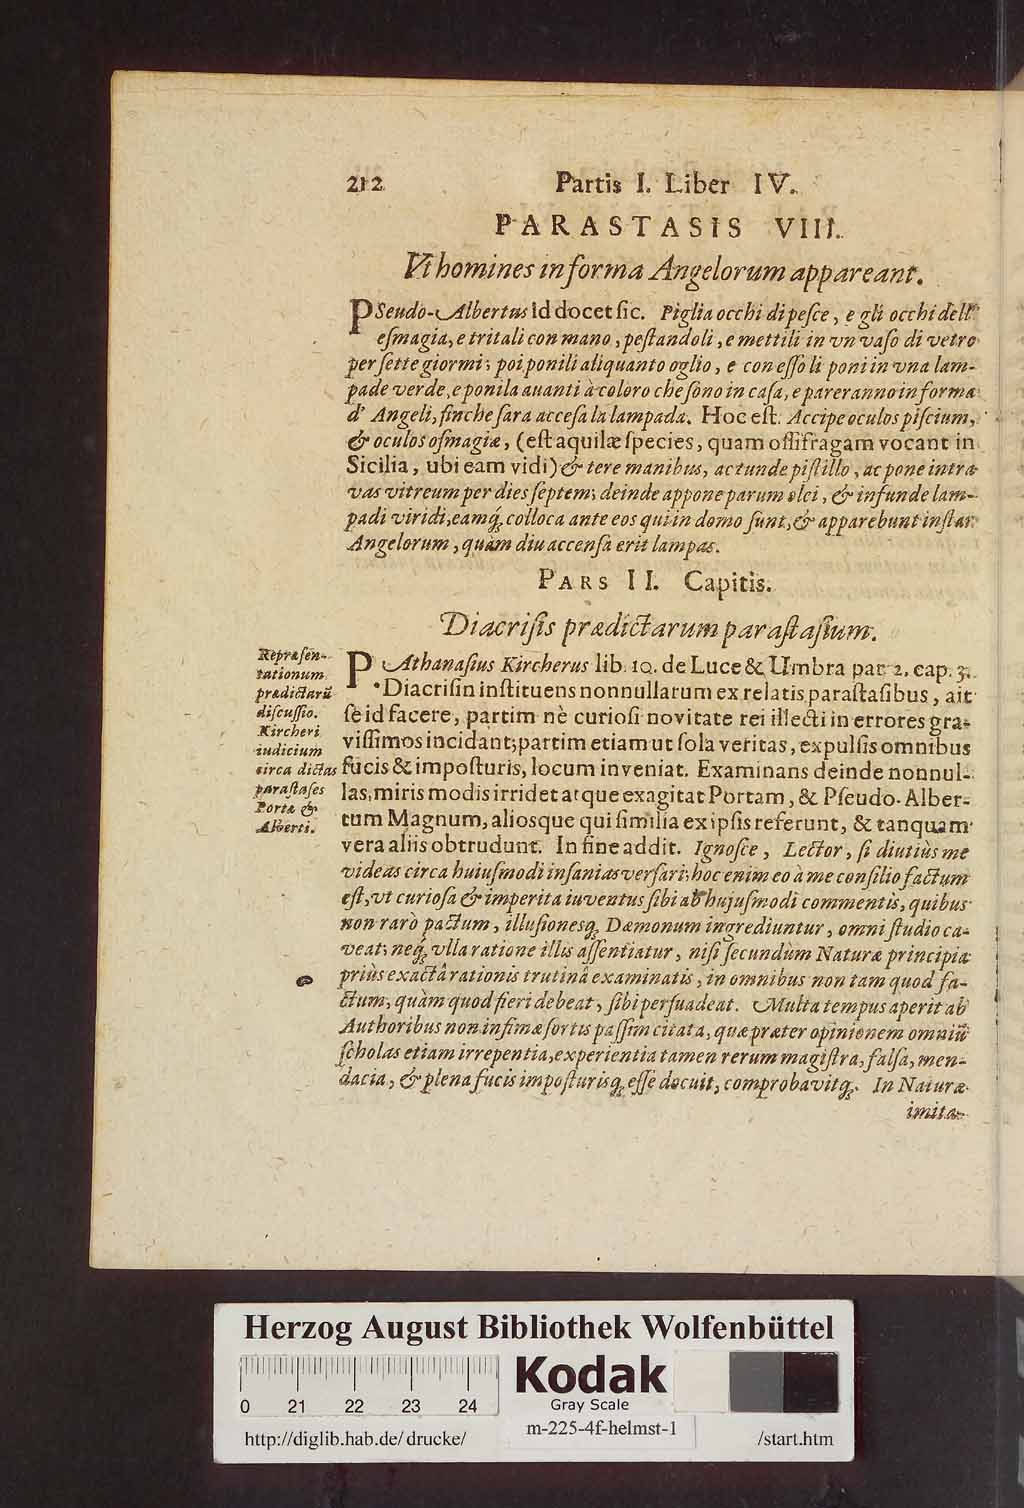 212 Partis I. Liber IV.
PARASTASIS VIII.
Vt homines in forma Angelorum appareant.
PSeudo-Albertus id docet ſic. Piglia occhi di peſce, e gli occhi dell'
eſmagia, e tritali con mano, peſtandoli, e mettili in vn vaſo di vetro
per ſette giormi; poi ponili aliquanto oglio, e con eſſo li poni in vna lam-
pade verde, e ponila auanti à coloro che ſono in caſa, e pareranno in forma
d' Angeli, finche ſara acceſa la lampada. Hoc eſt. Accipe oculos piſcium,
& oculos oſmagiæ, (eſt aquilæ ſpecies, quam oſſifragam vocant in
Sicilia, ubi eam vidi) & tere manibus, ac tunde piſtillo, ac pone intra
vas vitreum per dies ſeptem; deinde appone parum olei, & infunde lam-
padi viridi, eamq́; colloca ante eos qui in domo ſunt, & apparebunt inſtar
Angelorum, quàm diu accenſa erit lampas.
PARS II. Capitis.
Diacriſis prædictarum paraſtaſium.
Repræſen-
tationum
prædictarũ
diſcuſſio.
Kircheri
iudicium
circa dictas
paraſtaſes
Portæ &
Alberti.
P Athanaſius Kircherus lib. 10. de Luce & Umbra par 2. cap. 3.
. Diacriſin inſtituens nonnullarum ex relatis paraſtaſibus, ait
ſe id facere, partim nè curioſi novitate rei illecti in errores gra-
viſſimos incidant; partim etiam ut ſola veritas, expulſis omnibus
fucis & impoſturis, locum inveniat. Examinans deinde nonnul-
las, miris modis irridet atque exagitat Portam, & Pſeudo-Alber-
tum Magnum, aliosque qui ſimilia ex ipſis referunt, & tanquam
vera aliis obtrudunt. In fine addit. Ignoſce, Lector, ſi diutiùs me
videas circa huiuſmodi inſanias verſari; hoc enim eo à me conſilio factum
eſt, vt curioſa & imperita iuventus ſibi ab hujuſmodi commentis, quibus
non rarò pactum, illuſionesq; Dæmonum ingrediuntur, omni ſtudio ca-
veat; neq́; vlla ratione illis aſſentiatur, niſi ſecundùm Naturæ principia
priùs exactâ rationis trutinâ examinatis, in omnibus non tam quod fa-
ctum, quàm quod fieri debeat, ſibi perſuadeat. Multa tempus aperit ab
Authoribus non infimæ ſortis paſſim citata, quæ præter opinionem omniũ
ſcholas etiam irrepentia, experientia tamen rerum magiſtra, falſa, men-
dacia, & plena fucis impoſturisq; eſſe docuit, comprobavitq;. In Naturæ
imita-
Herzog August Bibliothek Wolfenbüttel
0 21 22 23 24
Kodak
Gray Scale
http://diglib.hab.de/drucke/
m-225-4f-helmst-1
/start.htm